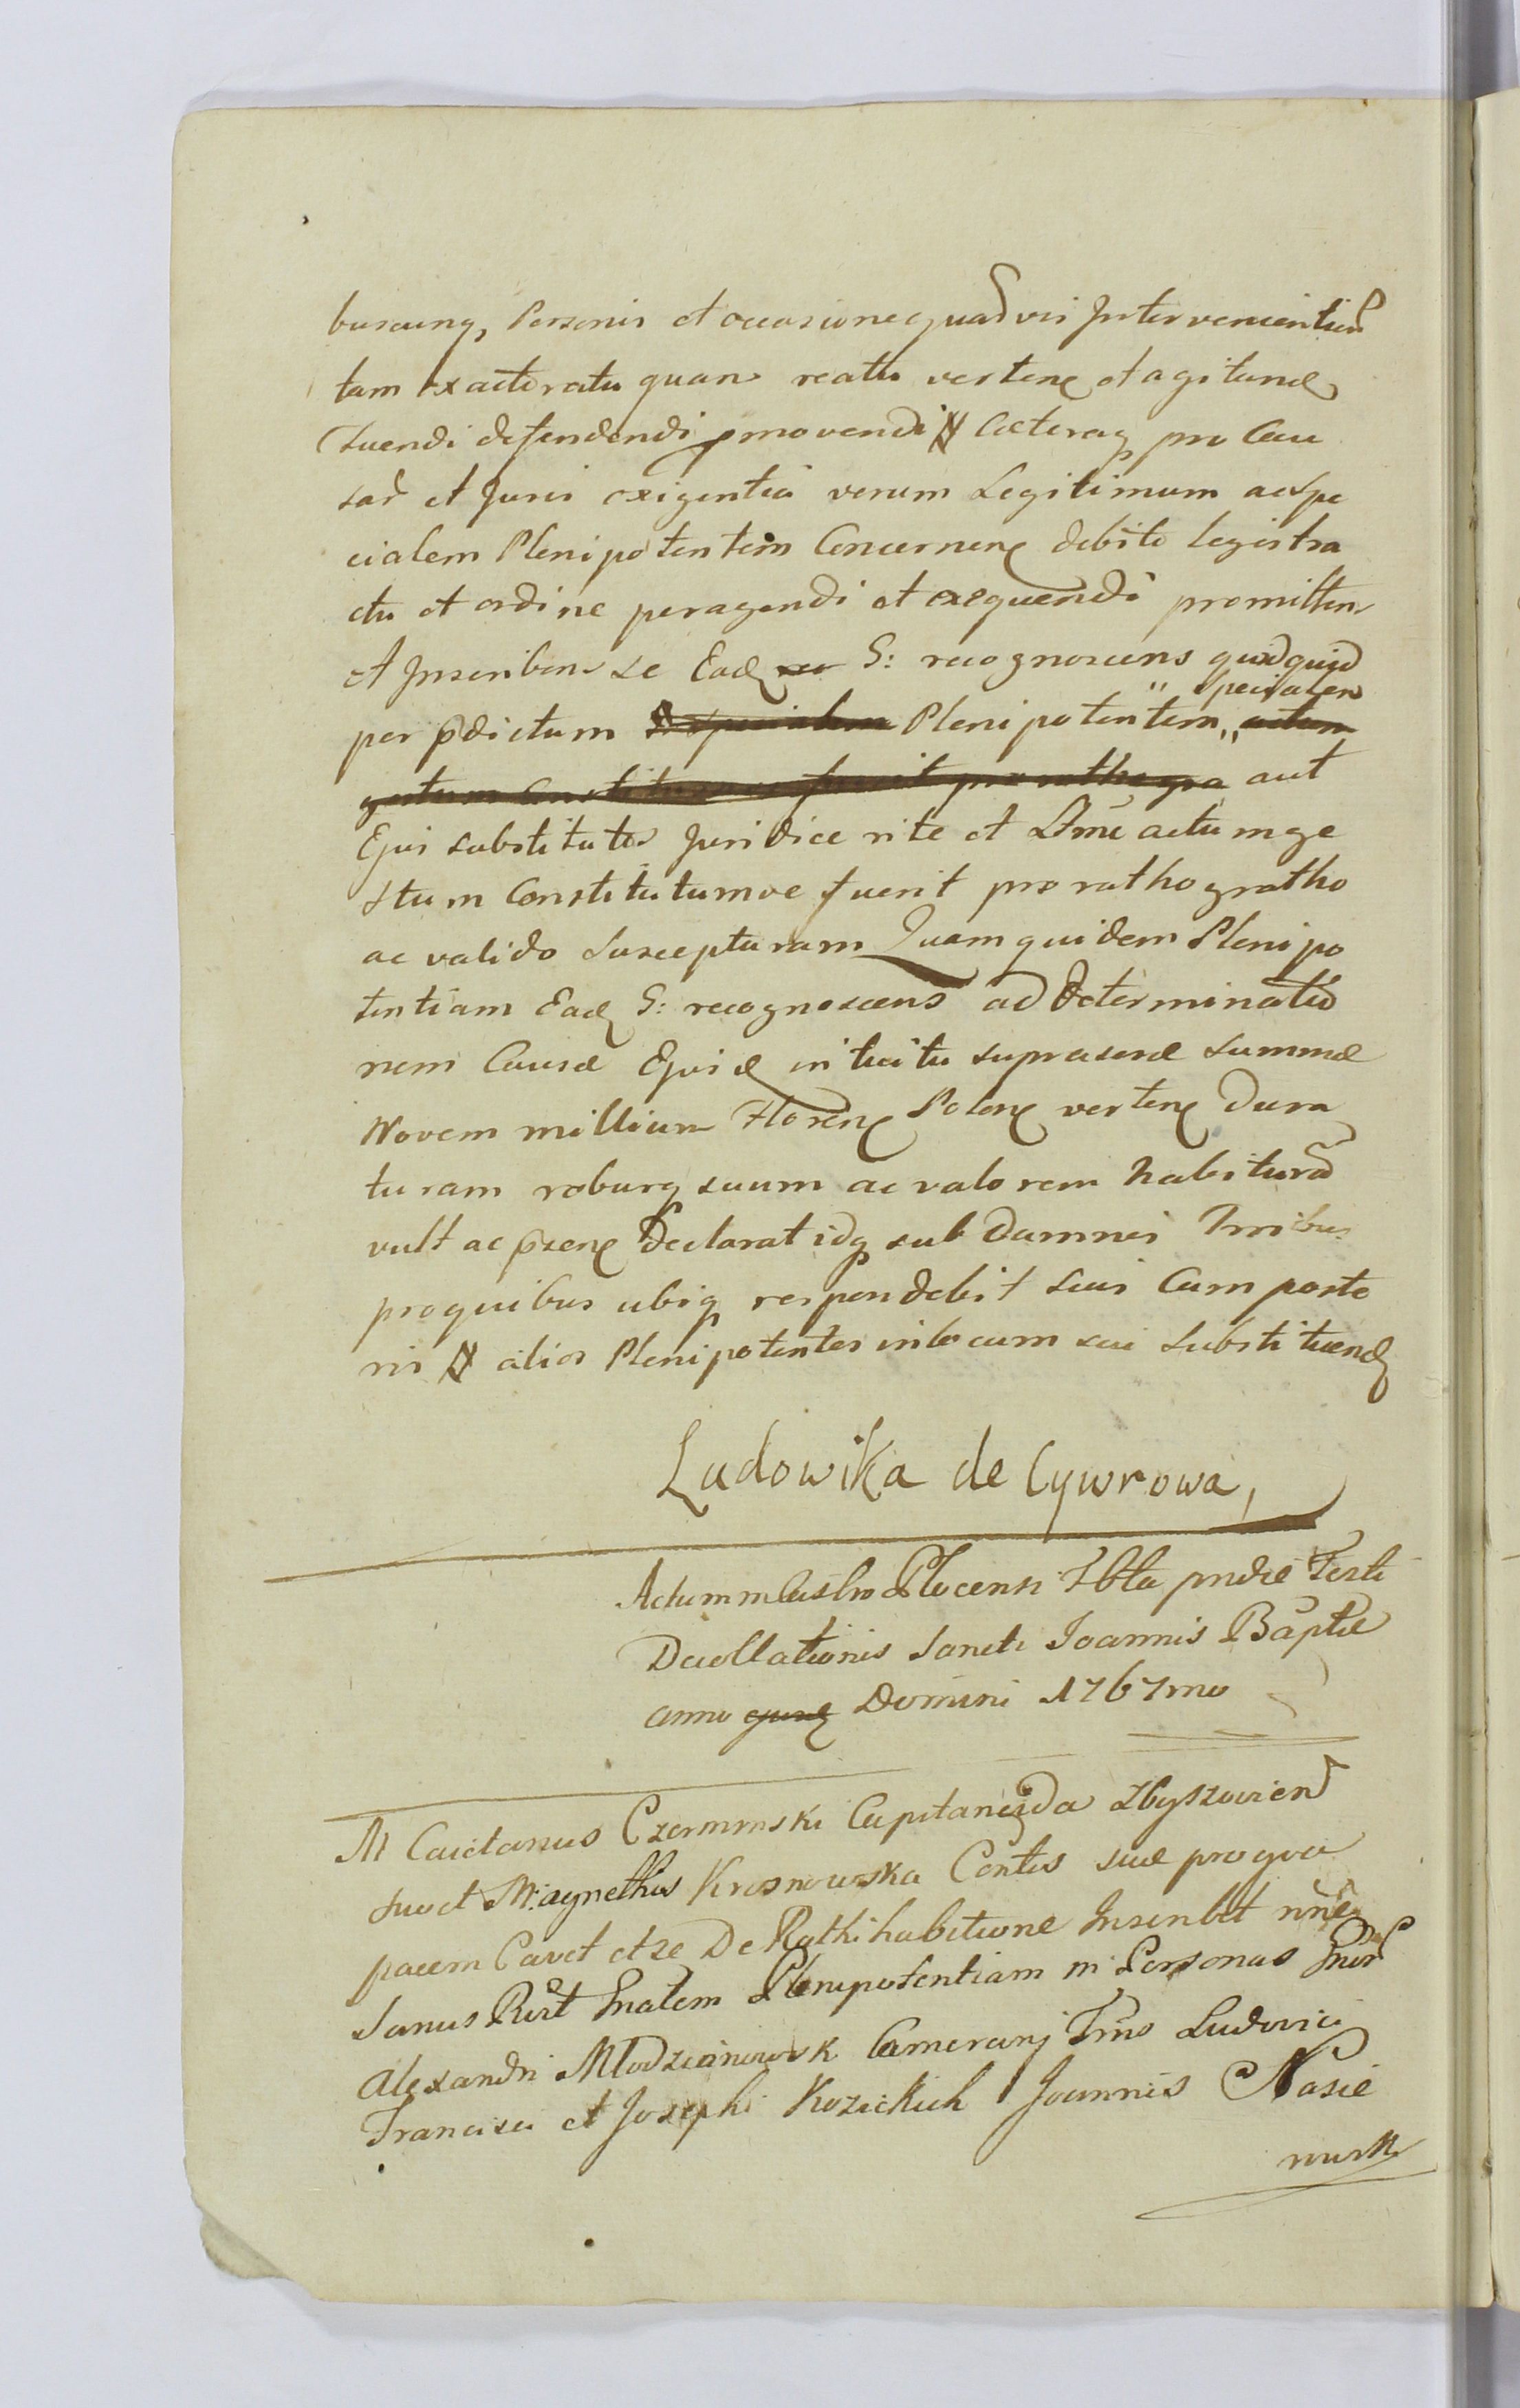 buscunq, Personis et occasione quavis Intervenientium
tam ex actoratu quam reatu verten et agitand
tuendi defendendi pmovendi Cæteraq pro Cau
sar et Juris exigentia verum Legitimum ac Spe
cialem Plenipotentem Concernen debito Legis tra
ctu et ordine peragendi et exequendi promitten
et Inscriben se Ead rec G: recognoscens quodquid
per pdictum specialem Plenipotentem specialem actum
gestum Constitutumve fuerit pro ratho gra aut
Ejus substitutos Juridice rite et Ltme actum ge
stum Constitutumve fuerit pro ratho gratho
ac valido Suscepturam Quam quidem Plenipo
tentiam Ead G: recognoscens ad determinatio
nem Causæ Ejusd intuitu suprascræ summæ
Novem millium Floren Polon verten dura
turam roburq suum ac valorem habituram
vult ac psen Declarat idq sub Damnis Trribus
pro quibus ubiq respondebit Suis Cum poste
ris & alios Plenipotentes in locum sui Substituend
Ludowika de Cywrowa,
Actum in Castro Plocensi Sbbto pridie Festi
Decollationis Sancti Joannis Baptæ
anno ejusd Domini 1767mo
M Caietanus Czerminski Capitaneida Zbyszovien
suo et M: agnethis Krosnowska Contis suæ pro qva
pacem Cavet et se De Rathihabitione Inscribit
Sanus Rcit Gnalem Plenipotentiam in Personas Gnor
Alexandri Mlodzianowsk Camerarj Trris Ludovici
Francisci et Josephi Kozickich Joannis Nasie
rowsk